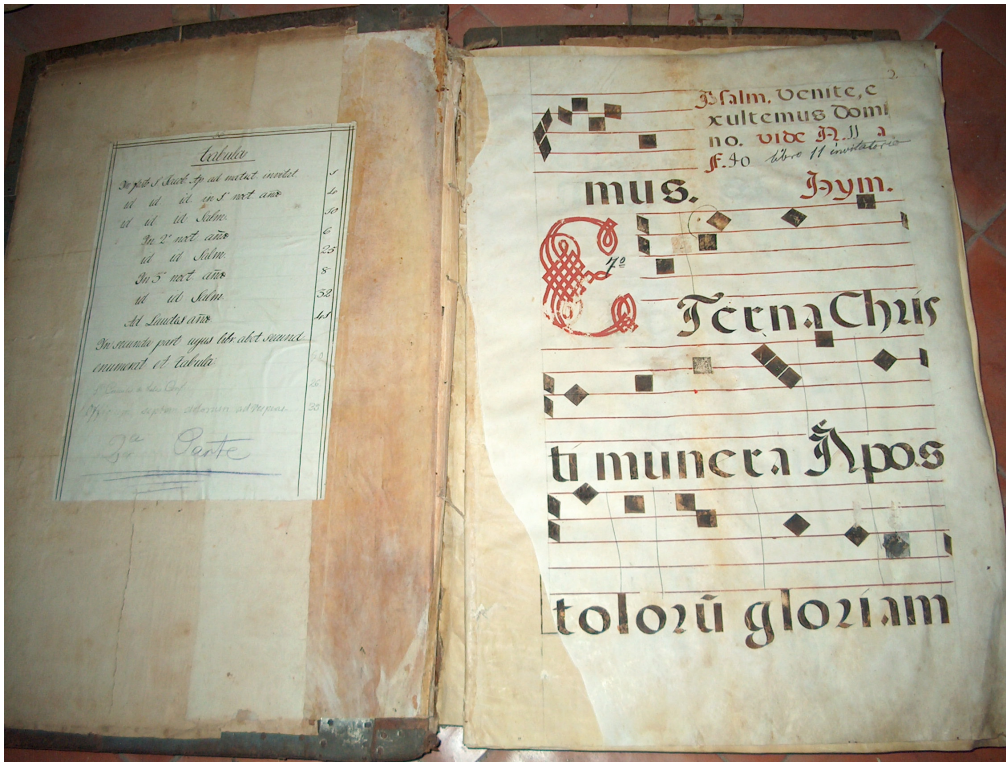 tabula
In festo S. Jacob. Ap. ad matut. invitat. 1
id id id in 1º noct. añæ 4
id id id Salm. 10
In 2º noct. añæ 6
id id Salm. 25
In 3º noct. añæ 8
id id Salm. 32
Ad Laudes añæ 41
In secunda part. ujus libr. abet secund.
enumerat. et tabula
2ª Parte
2.
Psalm. Venite, e
xultemus Domi
no. vide N. 11 a
F. 40 libro 11 invitatorio
mus. Hym.
7º
ETerna Chris
ti munera Apos
tolorū gloriam